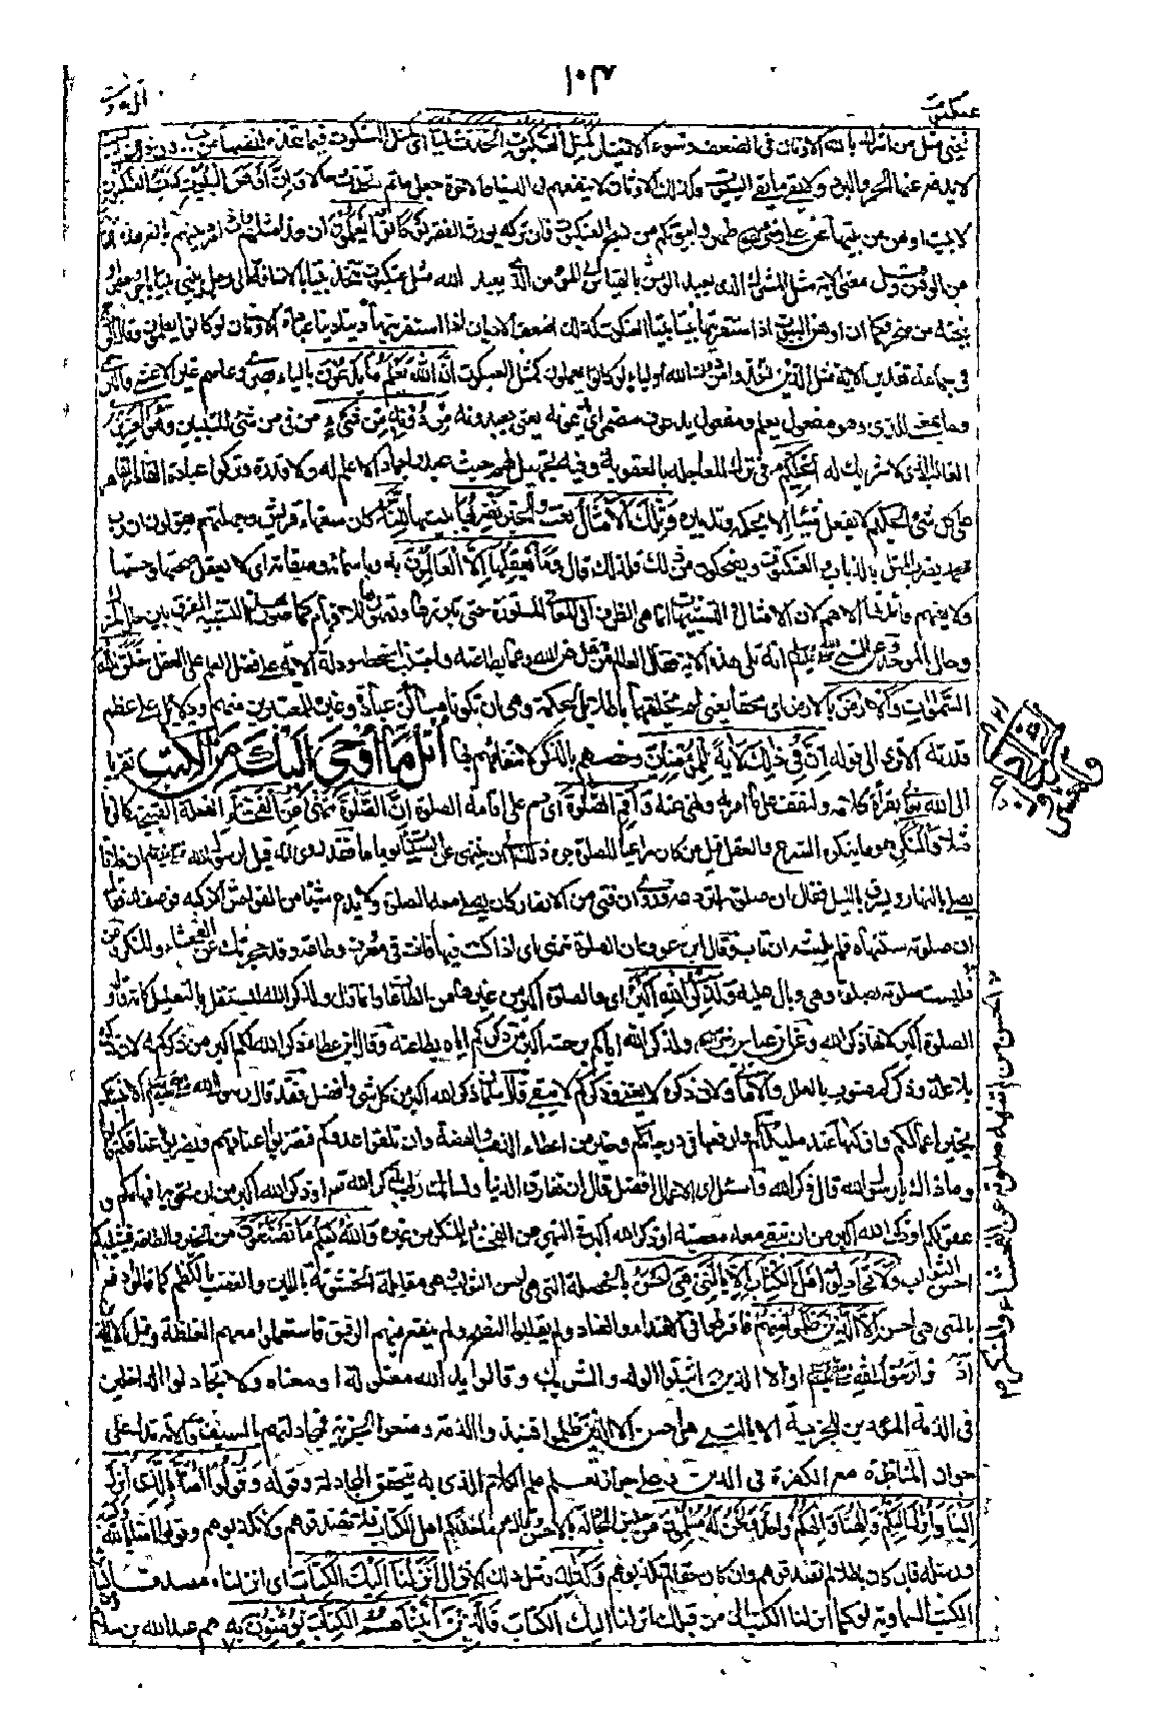 عنكبوت
فمثل من اشرك بالله الاوثان فى الضعف وسوء الاختيار كمثل العنكبوت اتخذت بيتا اى كمثل العنكبوت فيما تتخذه لنفسها من
لا يدفع عنها الحر والبرد ولا يقى ما يقى البيوت وكذلك الاوثان لا تنفعهم فى الدنيا والاخرة اتخذت حال وان اوهن البيوت لبيت العنكبوت
لا بيت اوهن من بيتها عن على رضى الله عنه طهروا بيوتكم من نسج العنكبوت فان تركه يورث الفقر لو كانوا يعلمون ان هذا مثلهم وان امر دينهم بالغ هذه
من الوهن وقيل معنى الاية مثل المشرك الذى يعبد الوثن بالقياس الى المؤمن الذى يعبد الله مثل عنكبوت تتخذ بيتا بالاضافة الى رجل يبنى بيتا باجر وجص او
ينحته من صخر فكما ان اوهن البيوت اذا استقريتها بيتا بيتا بيت العنكبوت كذلك اضعف الاديان اذا استقريتها دينا دينا عبادة الاوثان لو كانوا يعلمون وقال
فى جماعة تقدير الاية مثل الذين اتخذوا من دون الله اولياء لو كانوا يعلمون كمثل العنكبوت ان الله يعلم ما يدعون بالياء بصرى وعاصم غير الاعشى
وما بمعنى الذى وهو مفعول يعلم ومفعول يدعون مضمر اى يدعونه يعنى يعبدونه من دونه من شىء من فى من شىء للتبيين وهو العزيز
الغالب الذى لا شريك له الحكيم فى ترك المعاجلة بالعقوبة وفيه تجهيل لهم حيث عبدوا جمادا لا علم له ولا قدرة وتركوا عبادة القادر القاهر
على كل شىء الحكيم الذى لا يفعل شيئا الا بحكمة وتدبير وتلك الامثال نعت والخبر نضربها نبينها للناس كان سفهاء قريش وجهلتهم يقولون ان رب
محمد يضرب المثل بالذباب والعنكبوت ويضحكون من ذلك فلذلك قال وما يعقلها الا العالمون به وباسمائه وصفاته اى لا يعقل صحتها وحسنها
ولا يفهم فائدتها الا هم لان الامثال والتشبيهات انما هى الطرق الى المعانى المستورة حتى تبرزها وتصورها للافهام كما صور هذا التشبيه الفرق بين حال المشرك
وحال الموحد عن النبى صلى الله عليه وسلم انه تلى هذه الاية فقال العالم من عقل عن الله وعمل بطاعته واجتنب سخطه ودلت الاية على فضل العلم على العقل خلق الله
السموات والارض بالحق اى محقا يعنى لم يخلقهما باطلا بل لحكمة وهى ان تكونا مساكن عباده وعبرة للمعتبرين منهم ودلائل على عظم
قدرته الا ترى الى قوله ان فى ذلك لاية للمؤمنين وخصهم بالذكر لانتفاعهم بها اتل ما اوحى اليك من الكتب تقربا
الى الله تعالى بقراءة كلامه ولتقف على ما امر به ونهى عنه واقم الصلوة اى دم على اقامة الصلوة ان الصلوة تنهى عن الفحشاء الفعلة القبيحة كالزنا
مثلا والمنكر هو ما ينكره الشرع والعقل قيل من كان مراعيا للصلوة جره ذلك الى ان ينتهى عن السيئات يوما ما فقد روى انه قيل لرسول الله صلى الله عليه وسلم ان فلانا
يصلى بالنهار ويسرق بالليل فقال ان صلوته لتردعه وروى ان فتى من الانصار كان يصلى معه الصلوة ولا يدع شيئا من الفواحش الا ركبه فوصف له فقال
ان صلوته ستنهاه فلم يلبث ان تاب وقال ابن عوف ان الصلوة تنهى اى اذا كنت فيها فانت فى معروف وطاعة وقد حجزتك عن الفحشاء والمنكر وعن
فليست صلوته بصلوة وهى وبال عليه ولذكر الله اكبر اى والصلوة اكبر من غيرها من الطاعات وانما قال ولذكر الله ليستقل بالتعليل كانه قال و
الصلوة اكبر لانها ذكر الله وعن ابن عباس رضى الله عنه ولذكر الله اياكم برحمته اكبر من ذكركم اياه بطاعته وقال ابن عطاء ذكر الله لكم اكبر من ذكركم له لان ذكره
بلا علة وذكركم مشوب بالعلل والامانى ولان ذكره لا يفنى وذكركم لا يبقى وقال سلمان ذكر الله اكبر من كل شىء وافضل فقد قال رسول الله صلى الله عليه وسلم الا انبئكم
بخير اعمالكم وازكاها عند مليككم وارفعها فى درجاتكم وخير من اعطاء الذهب والفضة وان تلقوا عدوكم فتضربوا اعناقهم ويضربوا اعناقكم قالوا
وما ذاك يا رسول الله قال ذكر الله وسئل اى الاعمال افضل قال ان تفارق الدنيا ولسانك رطب بذكر الله او ذكر الله اكبر من ان تحويه افهامكم و
عقولكم او ذكر الله اكبر من ان تبقى معه معصية او ذكر الله اكبر فى النهى عن الفحشاء والمنكر من غيره والله يعلم ما تصنعون من الخير والطاعة فيثيبكم
احسن الثواب ولا تجادلوا اهل الكتاب الا بالتى هى احسن بالخصلة التى هى احسن للثواب وهى مقابلة الخشونة باللين والغضب بالكظم كما قال ادفع
بالتى هى احسن الا الذين ظلموا منهم فافرطوا فى الاعتداء والعناد ولم يقبلوا النصح ولم ينفع فيهم الرفق فاستعملوا معهم الغلظة وقيل الا الذين
اذوا رسول الله صلى الله عليه وسلم او الا الذين اثبتوا الولد والشريك وقالوا يد الله مغلولة او معناه ولا تجادلوا الداخلين
فى الذمة المؤدين للجزية الا بالتى هى احسن الا الذين ظلموا فنبذوا الذمة ومنعوا الجزية فمجادلتهم بالسيف والاية تدل على
جواز المناظرة مع الكفرة فى الدين وعلى جواز تعلم علم الكلام الذى به يتحقق المجادلة وقوله وقولوا امنا بالذى انزل
الينا وانزل اليكم والهنا والهكم واحد ونحن له مسلمون من جنس المجادلة بالاحسن وقال عم ما حدثكم اهل الكتاب فلا تصدقوهم ولا تكذبوهم وقولوا امنا بالله
ورسله فان كان باطلا لم تصدقوهم وان كان حقا لم تكذبوهم وكذلك ومثل ذلك الانزال انزلنا اليك الكتاب اى انزلناه مصدقا
الكتب السماوية او كما انزلنا الكتب الى من قبلك انزلنا اليك الكتاب فالذين اتيناهم الكتاب يؤمنون به هم عبدالله بن سلام
الحسن من لم تنهه صلوته عن الفحشاء والمنكر